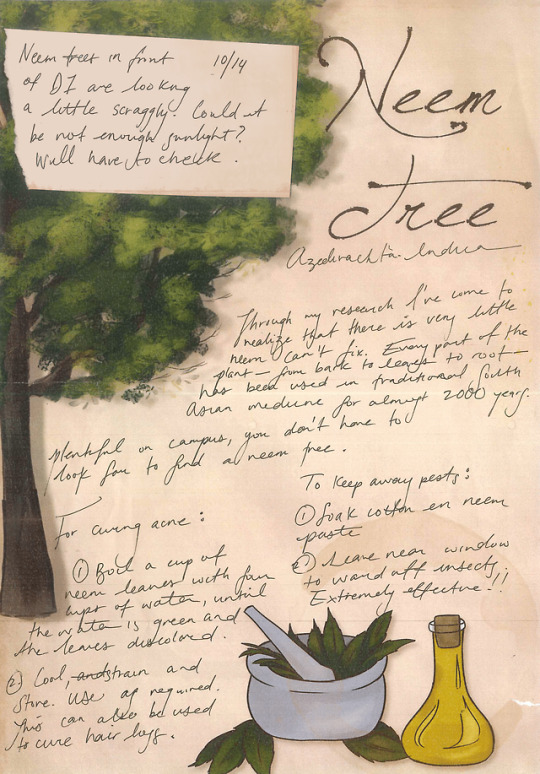 Neem trees in front 10/14
of DJ are looking
a little scraggly. Could it
be not enough sunlight?
Will have to check.
Neem
Tree
Azadirachta Indica
Through my research I've come to
realize that there is very little
neem can't fix. Every part of the
plant — from bark to leaves to root —
has been used in traditional South
Asian medicine for almost 2000 years.
Plentiful on campus, you don't have to
look far to find a neem tree.
For curing acne:
① Boil a cup of
neem leaves with four
cups of water, until
the water is green and
the leaves discolored.
② Cool, and strain and
store. Use as required.
This can also be used
to cure hair loss.
To keep away pests:
① Soak cotton in neem
paste
② Leave near window
to ward off insects.
Extremely effective!!